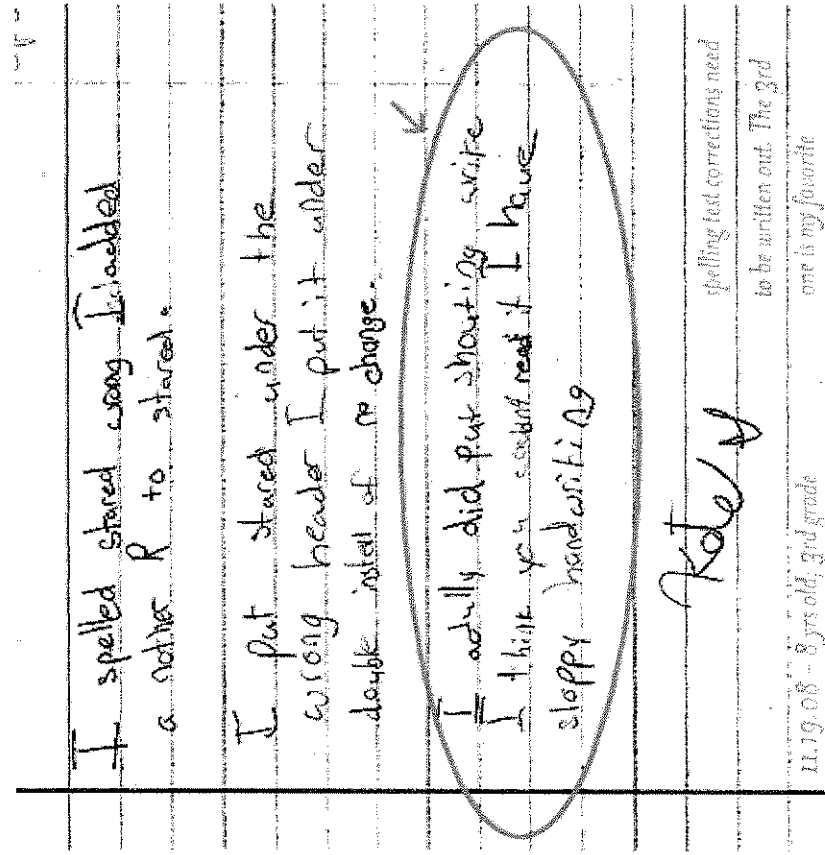 I spelled stared wrong I added
a nother R to stared.
I put stared under the
wrong header I put it under
double insted of no change.
I actully did put shouting write
I think you couldnt read it I have
sloppy handwriting
spelling test corrections need
to be written out. The 3rd
11.19.08 - 8 yrs old, 3rd grade
one is my favorite